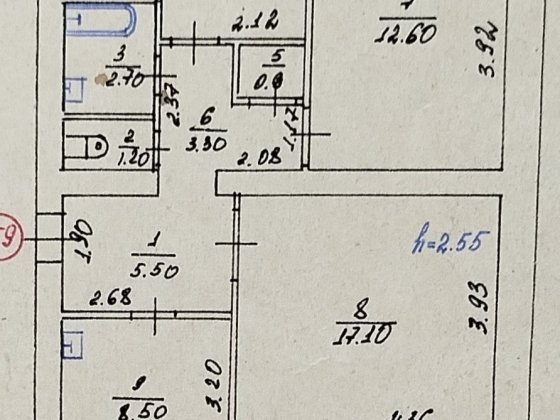 2.12
12.60
3.92
3
2.70
2.37
5
6
3.30
1.17
2
1.20
2.08
9
1.90
1
5.50
h=2.55
2.68
8
17.10
3.93
3.20
9
8.50